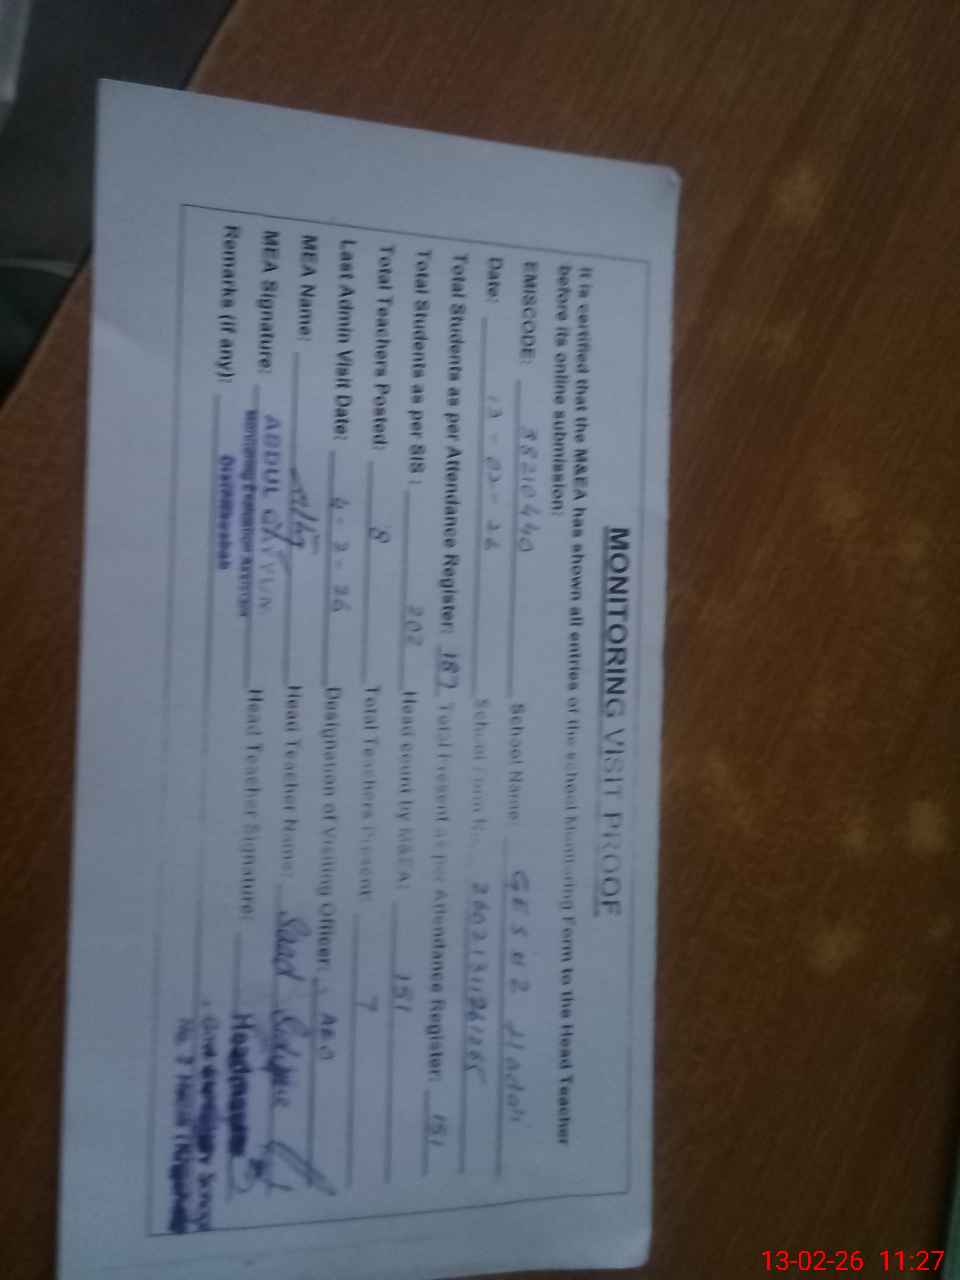 MONITORING VISIT PROOF
It is certified that the M&EA has shown all entries of the school Monitoring Form to the Head Teacher
before its online submission:
EMISCODE: 38210440 School Name: GES No 2 Hadali
Date: 13-02-26 School Form No.
Total Students as per Attendance Register: 187 Total Present as per Attendance Register: 151
Total Students as per SIS: 202 Head count by M&EA: 151
Total Teachers Posted: 8 Total Teachers Present: 7
Last Admin Visit Date: 4-2-26 Designation of Visiting Officer: AEO
MEA Name: Head Teacher Name: Saad
MEA Signature: ABDUL Head Teacher Signature:
Remarks (if any):
13-02-26 11:27